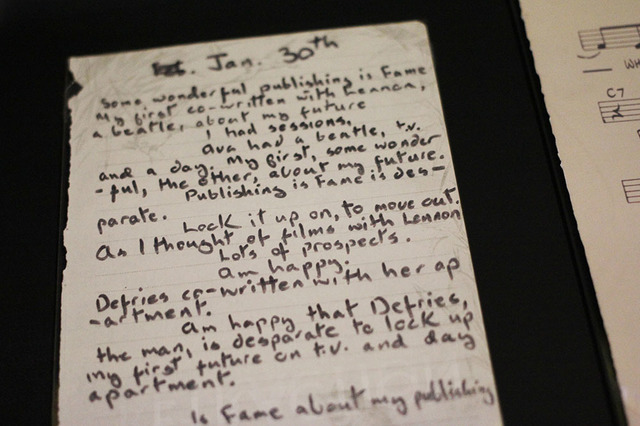 Jan. 30th
Some wonderful publishing is Fame
My first co-written with Lennon,
a beatle, about my future
I had sessions,
Ava had a beatle, t.v.
and a day. My first, some wonder
-ful, the other, about my future.
Publishing is Fame is des-
parate.
Lock it up on, to move out.
As I thought of films with Lennon
Lots of prospects.
am happy.
Defries co-written with her ap
-artment.
am happy that Defries,
the man, is desparate to lock up
my first future on t.v. and day
apartment.
Is Fame about my publishing
WH
C7